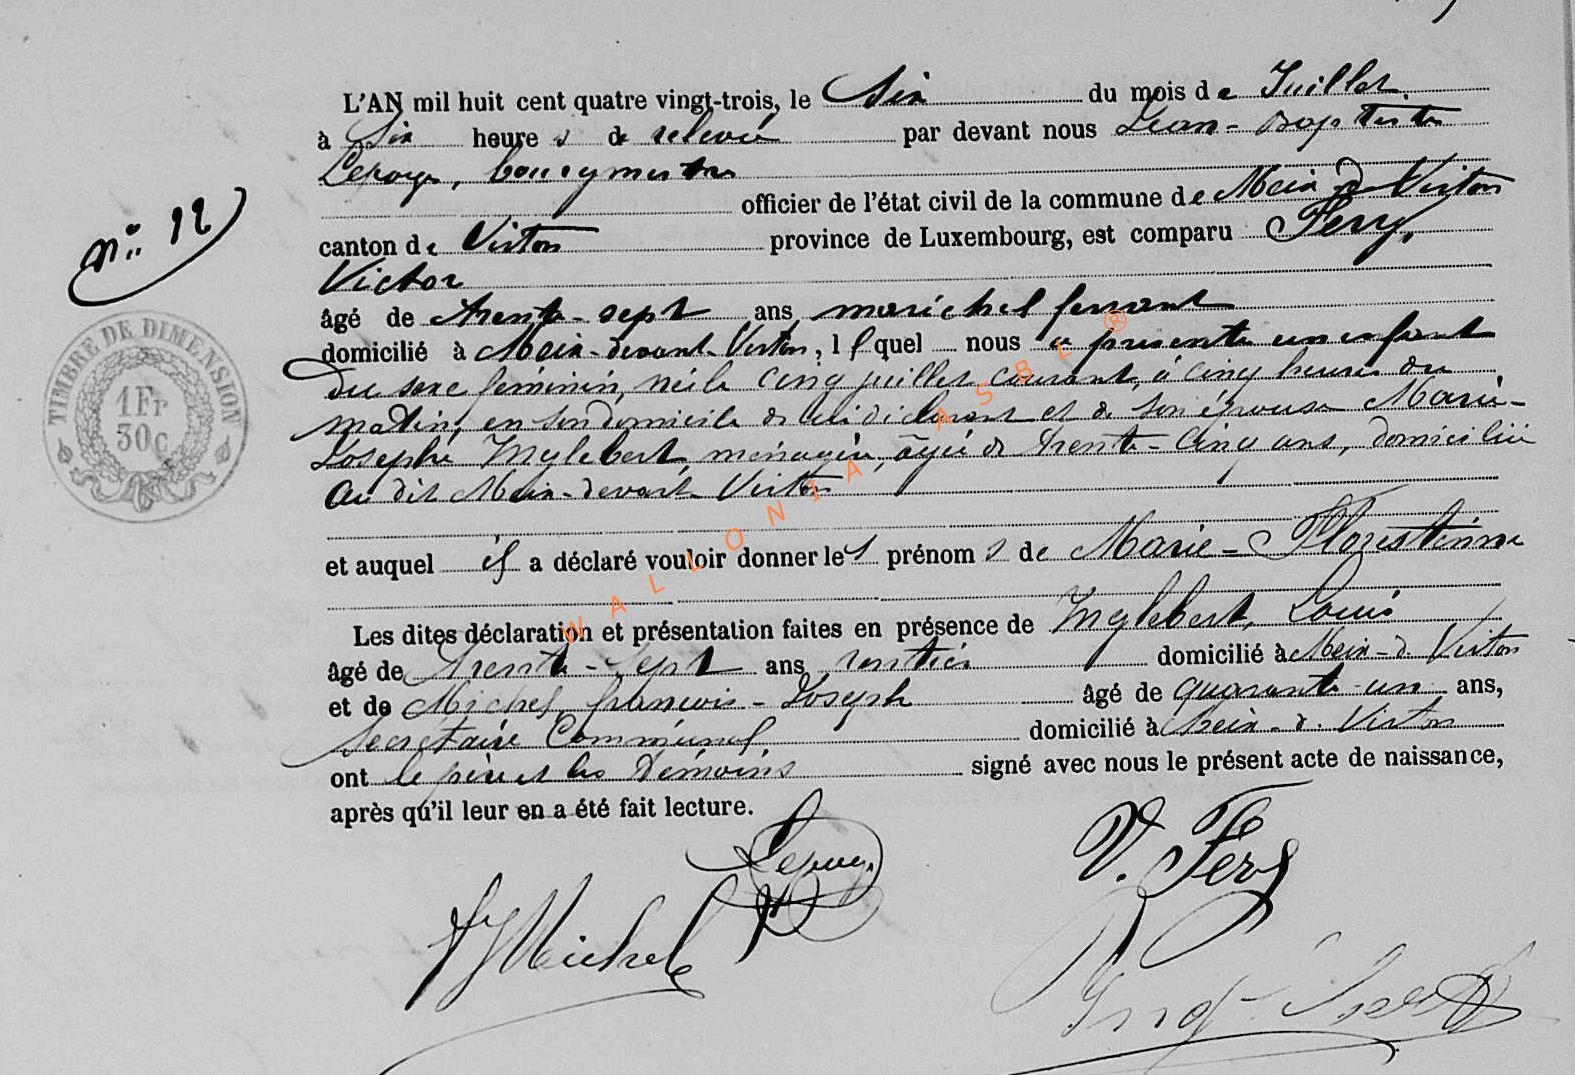 L'AN mil huit cent quatre vingt-trois, le six du mois de Juillet.
à six heures de relevée par devant nous Jean-Baptiste
Lepage, bourgmestre
officier de l'état civil de la commune de Meix-d-Virton
N° 12
canton de Virton province de Luxembourg, est comparu Fery,
Victor
âgé de trente-sept ans maréchal ferrant
domicilié à Meix-devant-Virton, lequel nous a présenté un enfant
du sexe féminin, née le cinq juillet courant, à cinq heures du
matin, en son domicile de lui déclarant et de son épouse Marie-
Josephe Inglebert, ménagère, âgée de trente-cinq ans, domiciliée
au dit Meix-devant-Virton
et auquel il a déclaré vouloir donner les prénoms de Marie-Florestinne
Les dites déclaration et présentation faites en présence de Inglebert, Louis
âgé de trente-sept ans rentier domicilié à Meix-d-Virton
et de Michel, François-Joseph âgé de quarante-un ans,
secrétaire Communal domicilié à Meix-d-Virton
ont le père et les témoins signé avec nous le présent acte de naissance,
après qu'il leur en a été fait lecture.
TIMBRE DE DIMENSION
1Fr
30c
WALLONIA ASBL ®
V. Fery
FJ Michel